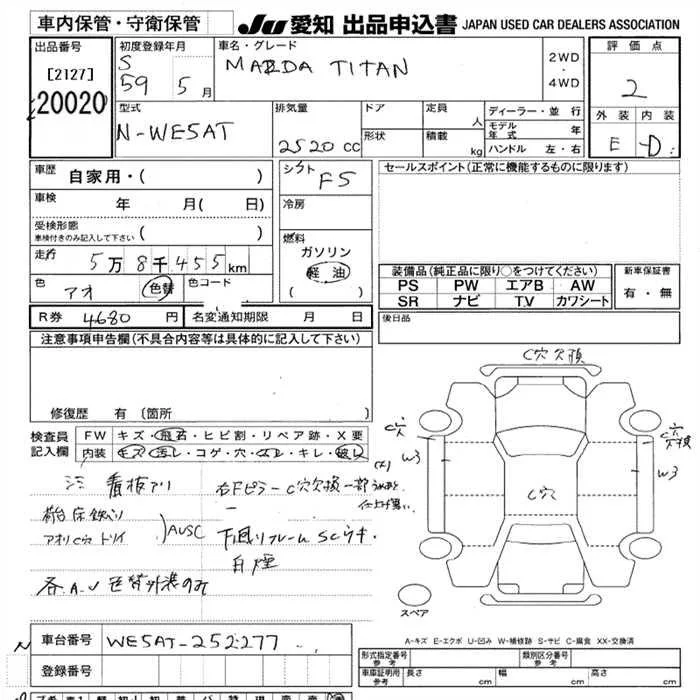 車内保管・守衛保管
JU 愛知 出品申込書 JAPAN USED CAR DEALERS ASSOCIATION
出品番号
[2127]
20020
初度登録年月
S
59 5 月
車名・グレード
MAZDA TITAN
2WD
・
4WD
評価点
2
外装 内装
E D
型式
N-WE5AT
排気量
2520 cc
ドア
形状
定員 人
積載 kg
ディーラー・並行
モデル年式 年
ハンドル 左・右
車歴 自家用・( )
車検 年 月( 日)
受検形態
車検付きのみ記入して下さい ( )
走行 5万8千455km
色 アオ 色替 色コード
シフト F5
冷房
燃料
ガソリン
軽油
( )
セールスポイント(正常に機能するものに限ります)
装備品(純正品に限り○をつけてください)
PS PW エアB AW
SR ナビ T.V カワシート
新車保証書
有・無
R券 4680 円 名変通知期限 月 日
後日品
注意事項申告欄(不具合内容等は具体的に記入して下さい)
修復歴 有 [箇所
検査員
記入欄
FW キズ・飛石・ヒビ割・リペア跡・X要
内装 キズ・汚レ・コゲ・穴・・キレ・破レ
看板アリ
荷台床鉄ハリ
アオリC穴 トリイ
AUSC
各A.U 色替外装のみ
右FピラーC穴欠損 一部
下回りフレームSCサキ・
白煙
C穴欠損
C穴
W3
C穴
C穴欠損
W3
スペア
車台番号 WE5AT-252277
登録番号
A-キズ E-エクボ U-凹み W-補修跡 S-サビ C-腐食 XX-交換済
形式指定番号 参考
類別区分番号 参考
車庫証明用 参考 長さ cm 幅 cm 高さ cm